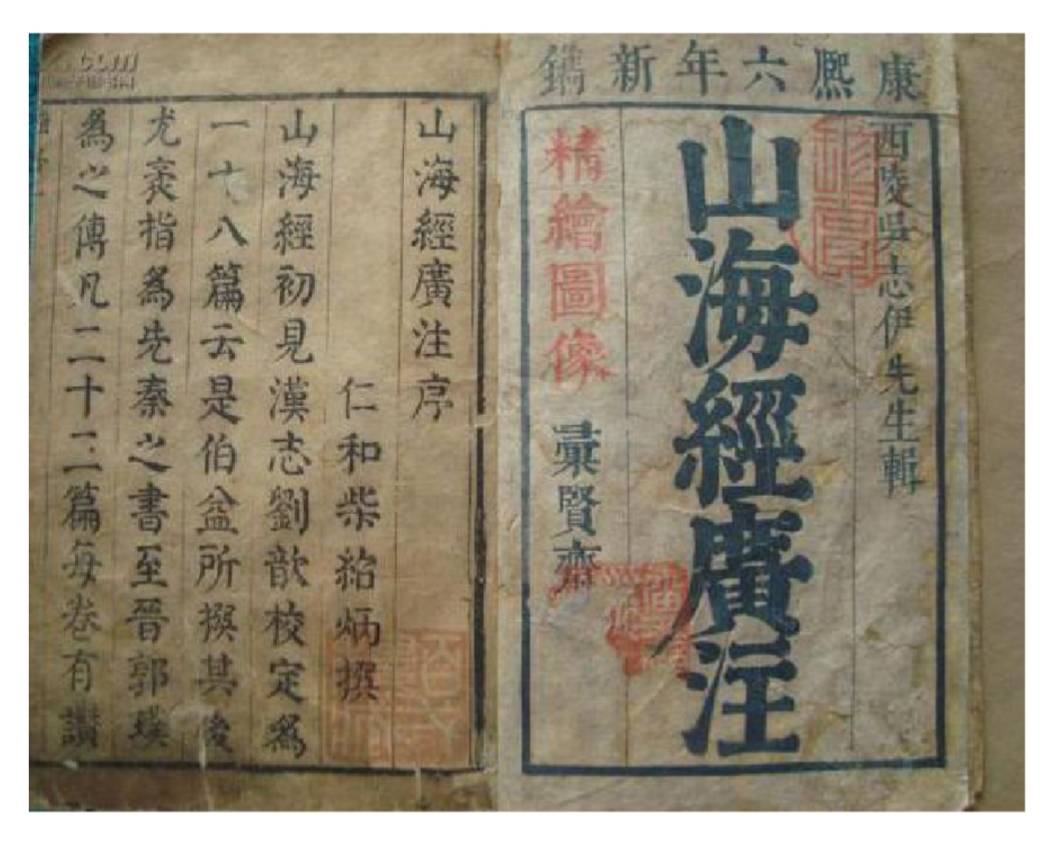 康熈六年新鐫
西陵吳志伊先生輯
山海經廣注
精繪圖像
彚賢齋
山海經廣注序
仁和柴紹炳撰
山海經初見漢志劉歆校定爲
一十八篇云是伯益所撰其後
尤袤指爲先秦之書至晉郭璞
爲之傳凡二十三篇每卷有讃